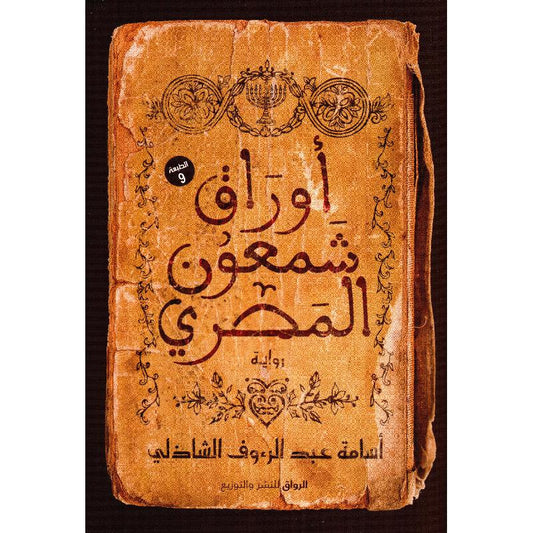 الطبعة
9
أَورَاق
شَمعُون
المَصري
رواية
أسامة عبد الرءوف الشاذلي
الرواق للنشر والتوزيع